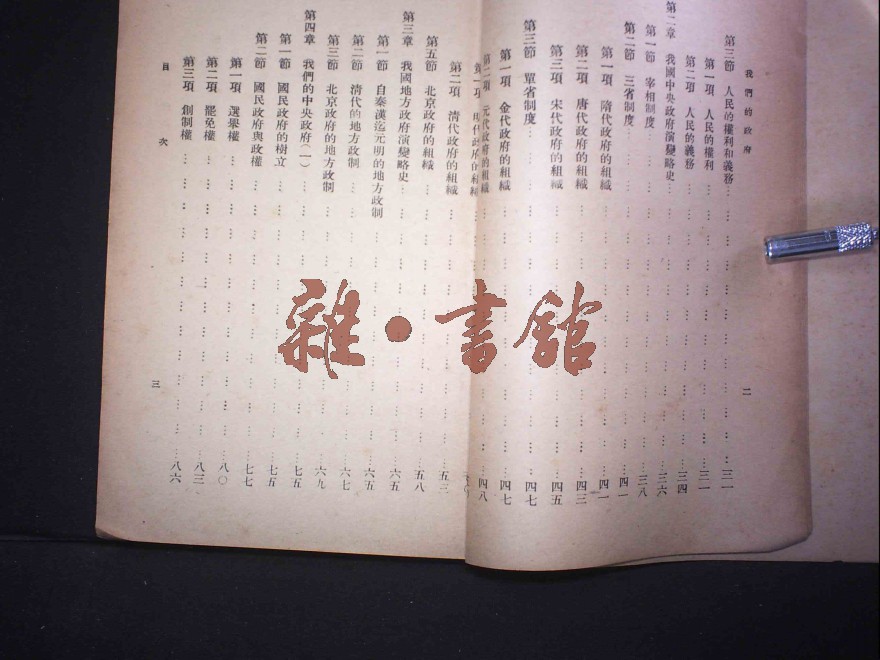 我們的政府
二
第三節 人民的權利和義務……三一
第一項 人民的權利……三一
第二項 人民的義務……三四
第二章 我國中央政府演變略史……三六
第一節 宰相制度……三八
第二節 三省制度……四一
第一項 隋代政府的組織……四一
第二項 唐代政府的組織……四三
第三項 宋代政府的組織……四五
第三節 單省制度……四七
第一項 金代政府的組織……四七
第二項 元代政府的組織……四八
第一項 明代政府的組織
第二項 清代政府的組織……五三
第五節 北京政府的組織……五八
第三章 我國地方政府演變略史……六五
第一節 自秦漢迄元明的地方政制……六五
第二節 清代的地方政制……六七
第三節 北京政府的地方政制……六九
第四章 我們的中央政府(一)……七五
第一節 國民政府的樹立……七五
第二節 國民政府與政權……七七
第一項 選舉權……八〇
第二項 罷免權……八三
第三項 創制權……八六
目次
三
雜·書館